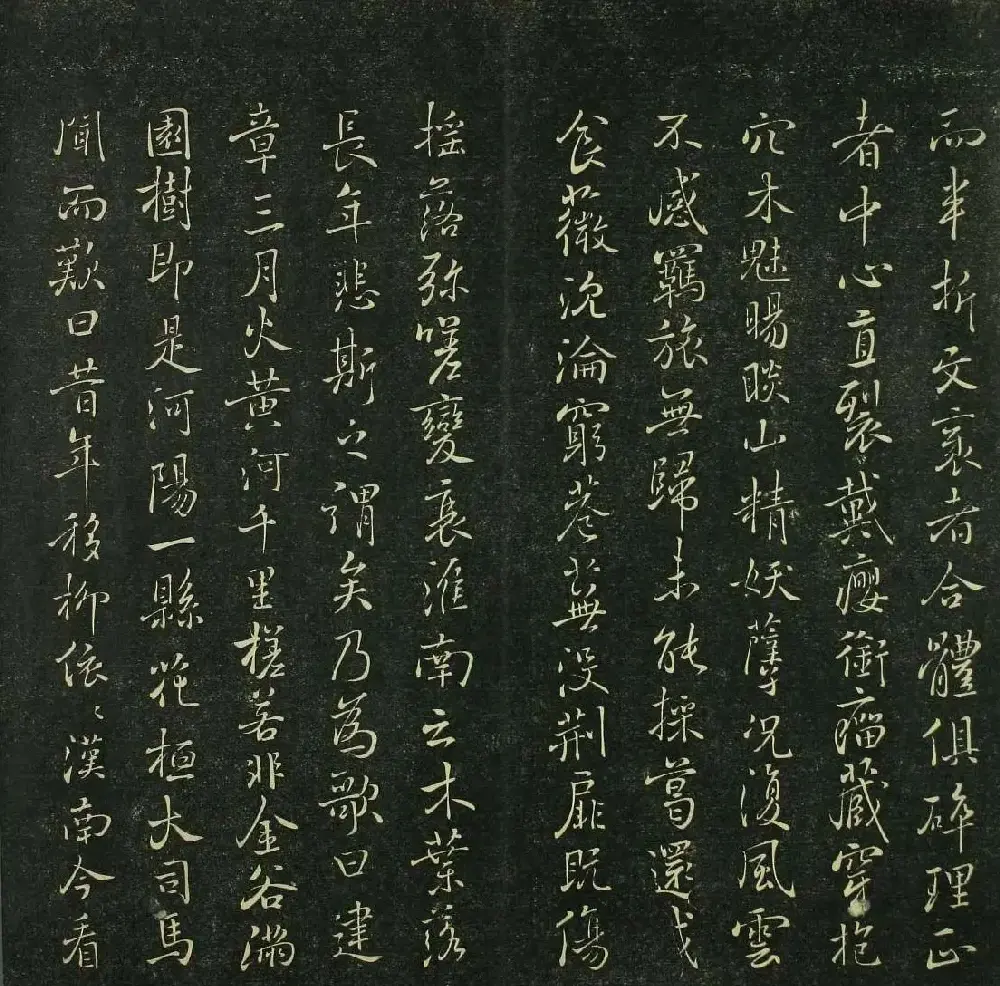 而半折文衰者合體俱碎理正
者中心直裂戴癭銜瘤藏穿抱
穴木魅睗睒山精妖孽況復風雲
不感羈旅無歸未能採葛還成
食薇沉淪窮巷蕪沒荊扉既傷
搖落彌嗟變衰淮南云木葉落
長年悲斯之謂矣乃為歌曰建
章三月火黃河千里槎若非金谷滿
園樹即是河陽一縣花桓大司馬
聞而歎曰昔年移柳依〻漢南今看